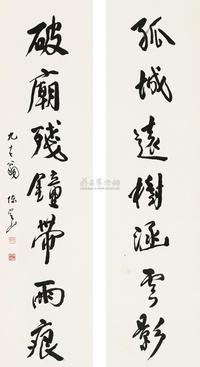 孤城遠樹涵雲影
破廟殘鐘帶雨痕